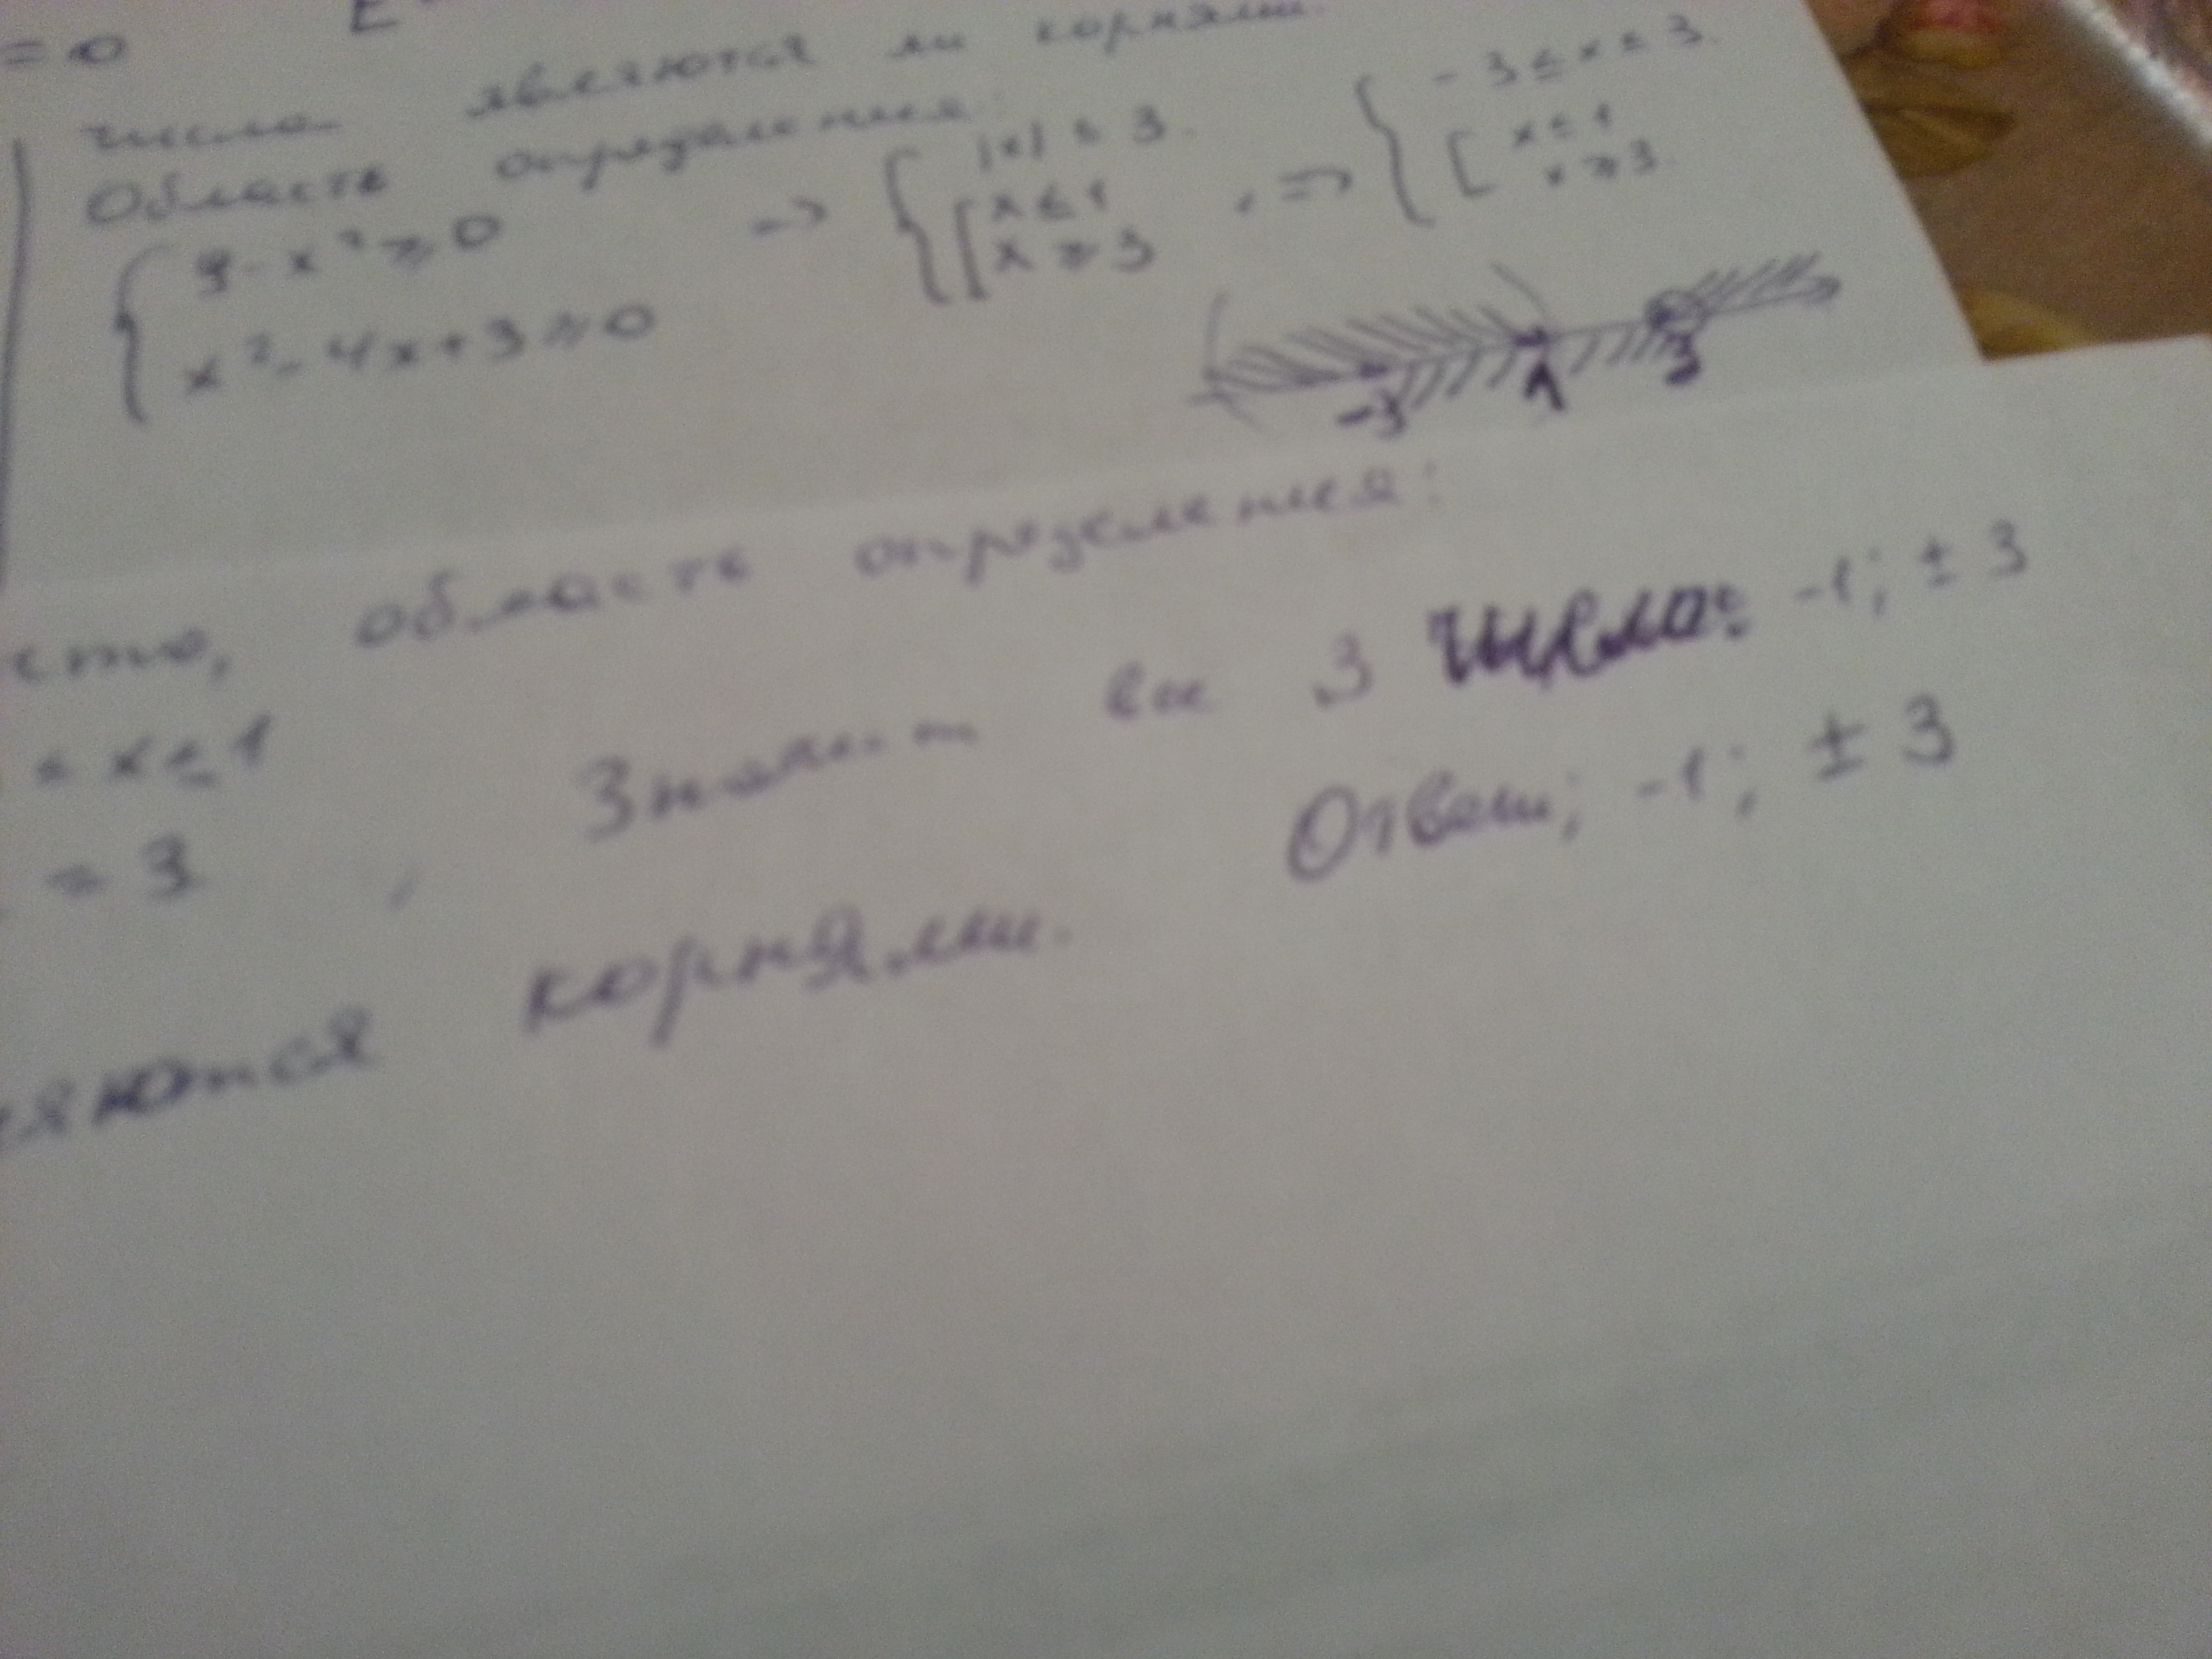 = 0
числа являются ли корнями.
Область определения:
{ 9 - x² ⩾ 0
x² - 4x + 3 ⩾ 0
=> { |x| ≤ 3.
[ x ≤ 1
x ⩾ 3
, => { -3 ≤ x ≤ 3.
[ x ≤ 1
x ⩾ 3.
-3 1 3
область определения:
≤ x ≤ 1
= 3, Значит все 3 числа: -1; ± 3
корнями. Ответ; -1; ± 3